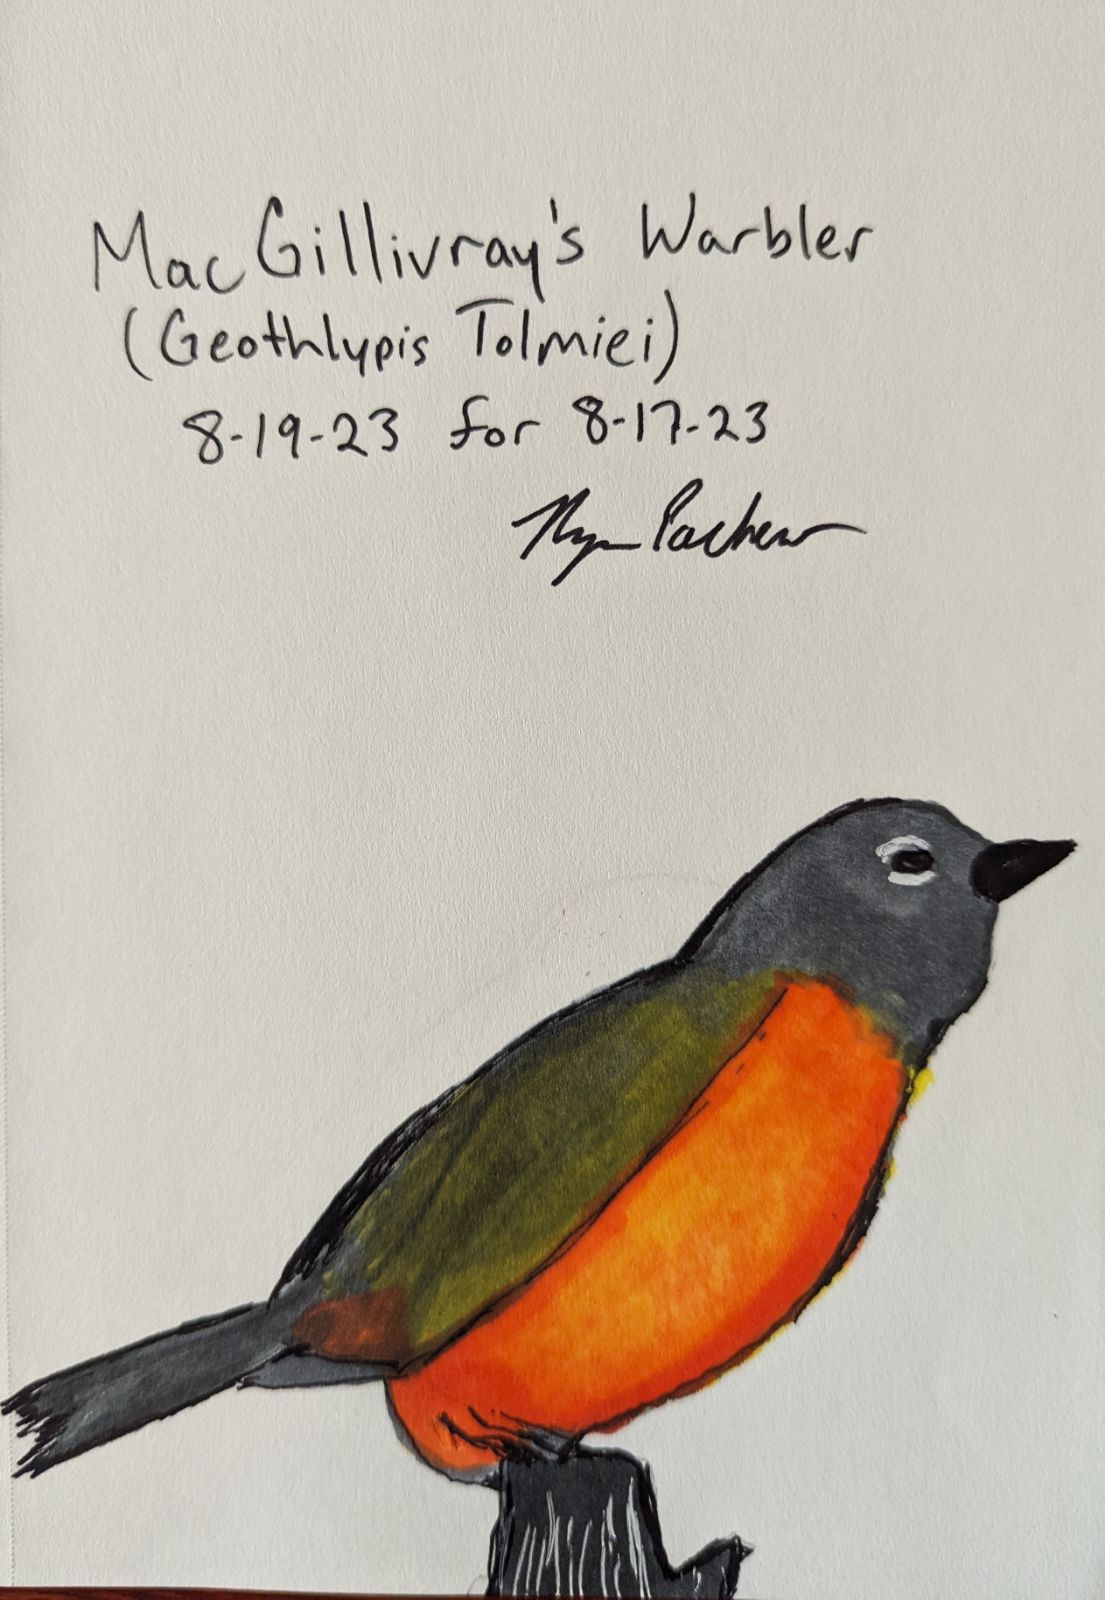 MacGillivray's Warbler
(Geothlypis Tolmiei)
8-19-23 for 8-17-23